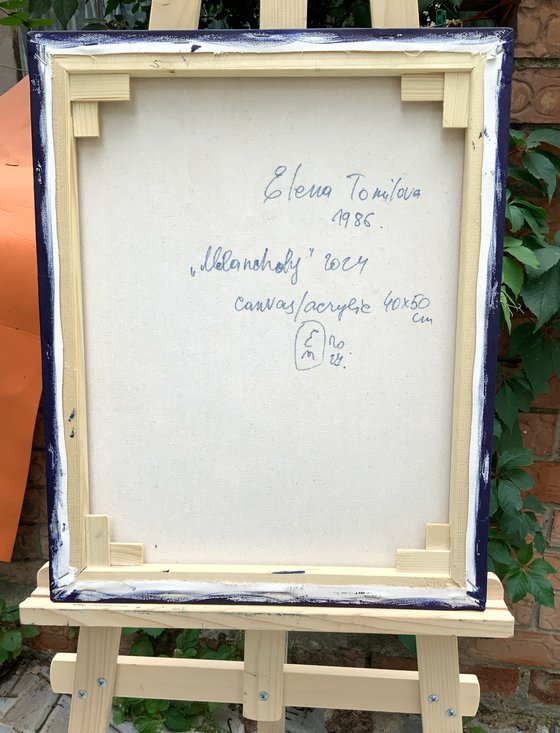 Elena Tomilova
1986.
„Melancholy" 2024
canvas/acrylic 40x50
cm